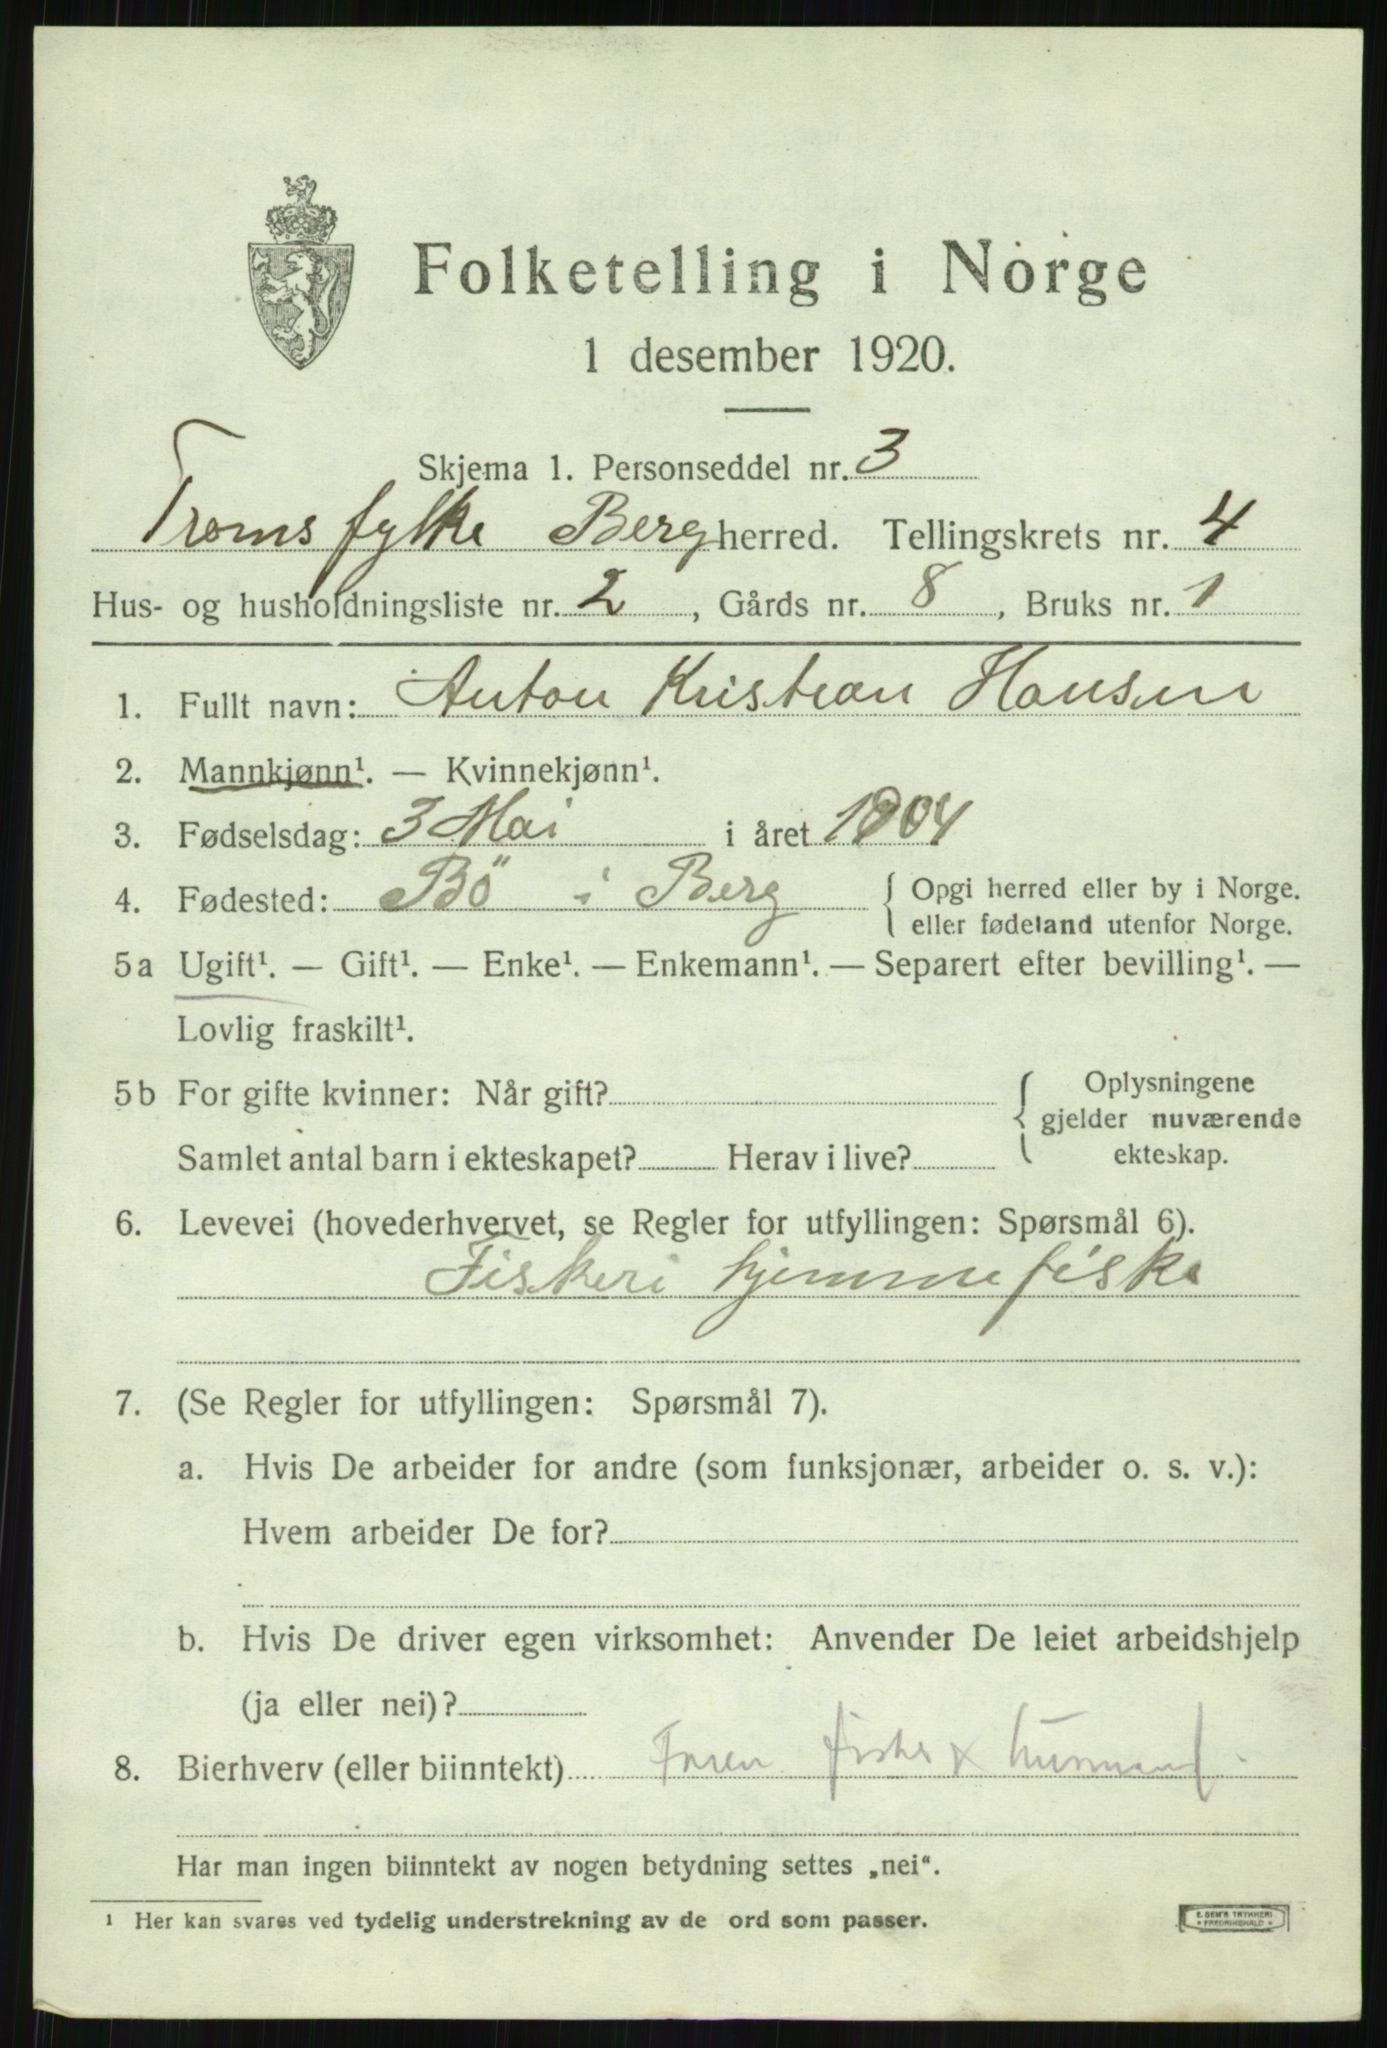 Folketelling i Norge
1 desember 1920.
Skjema 1. Personseddel nr. 3
Troms fylke Berg herred. Tellingskrets nr. 4
Hus- og husholdningsliste nr. 2, Gårds nr. 8, Bruks nr. 1
1. Fullt navn: Anton Kristian Hansen
2. Mannkjønn¹. — Kvinnekjønn¹.
3. Fødselsdag: 3 Mai i året 1904
4. Fødested: Bö i Berg { Opgi herred eller by i Norge.
eller fødeland utenfor Norge.
5a Ugift¹. — Gift¹. — Enke¹. — Enkemann¹. — Separert efter bevilling¹. —
Lovlig fraskilt¹.
5b For gifte kvinner: Når gift? { Oplysningene
gjelder nuværende
Samlet antal barn i ekteskapet? Herav i live? ekteskap.
6. Levevei (hovederhvervet, se Regler for utfyllingen: Spørsmål 6).
Fiskeri hjemmefiske
7. (Se Regler for utfyllingen: Spørsmål 7).
a. Hvis De arbeider for andre (som funksjonær, arbeider o. s. v.):
Hvem arbeider De for?
b. Hvis De driver egen virksomhet: Anvender De leiet arbeidshjelp
(ja eller nei)?
8. Bierhverv (eller biinntekt) Faren fisker x husmand
Har man ingen biinntekt av nogen betydning settes „nei“.
¹ Her kan svares ved tydelig understrekning av de ord som passer.
E. SEM'S TRYKKERI
FREDRIKSHALD